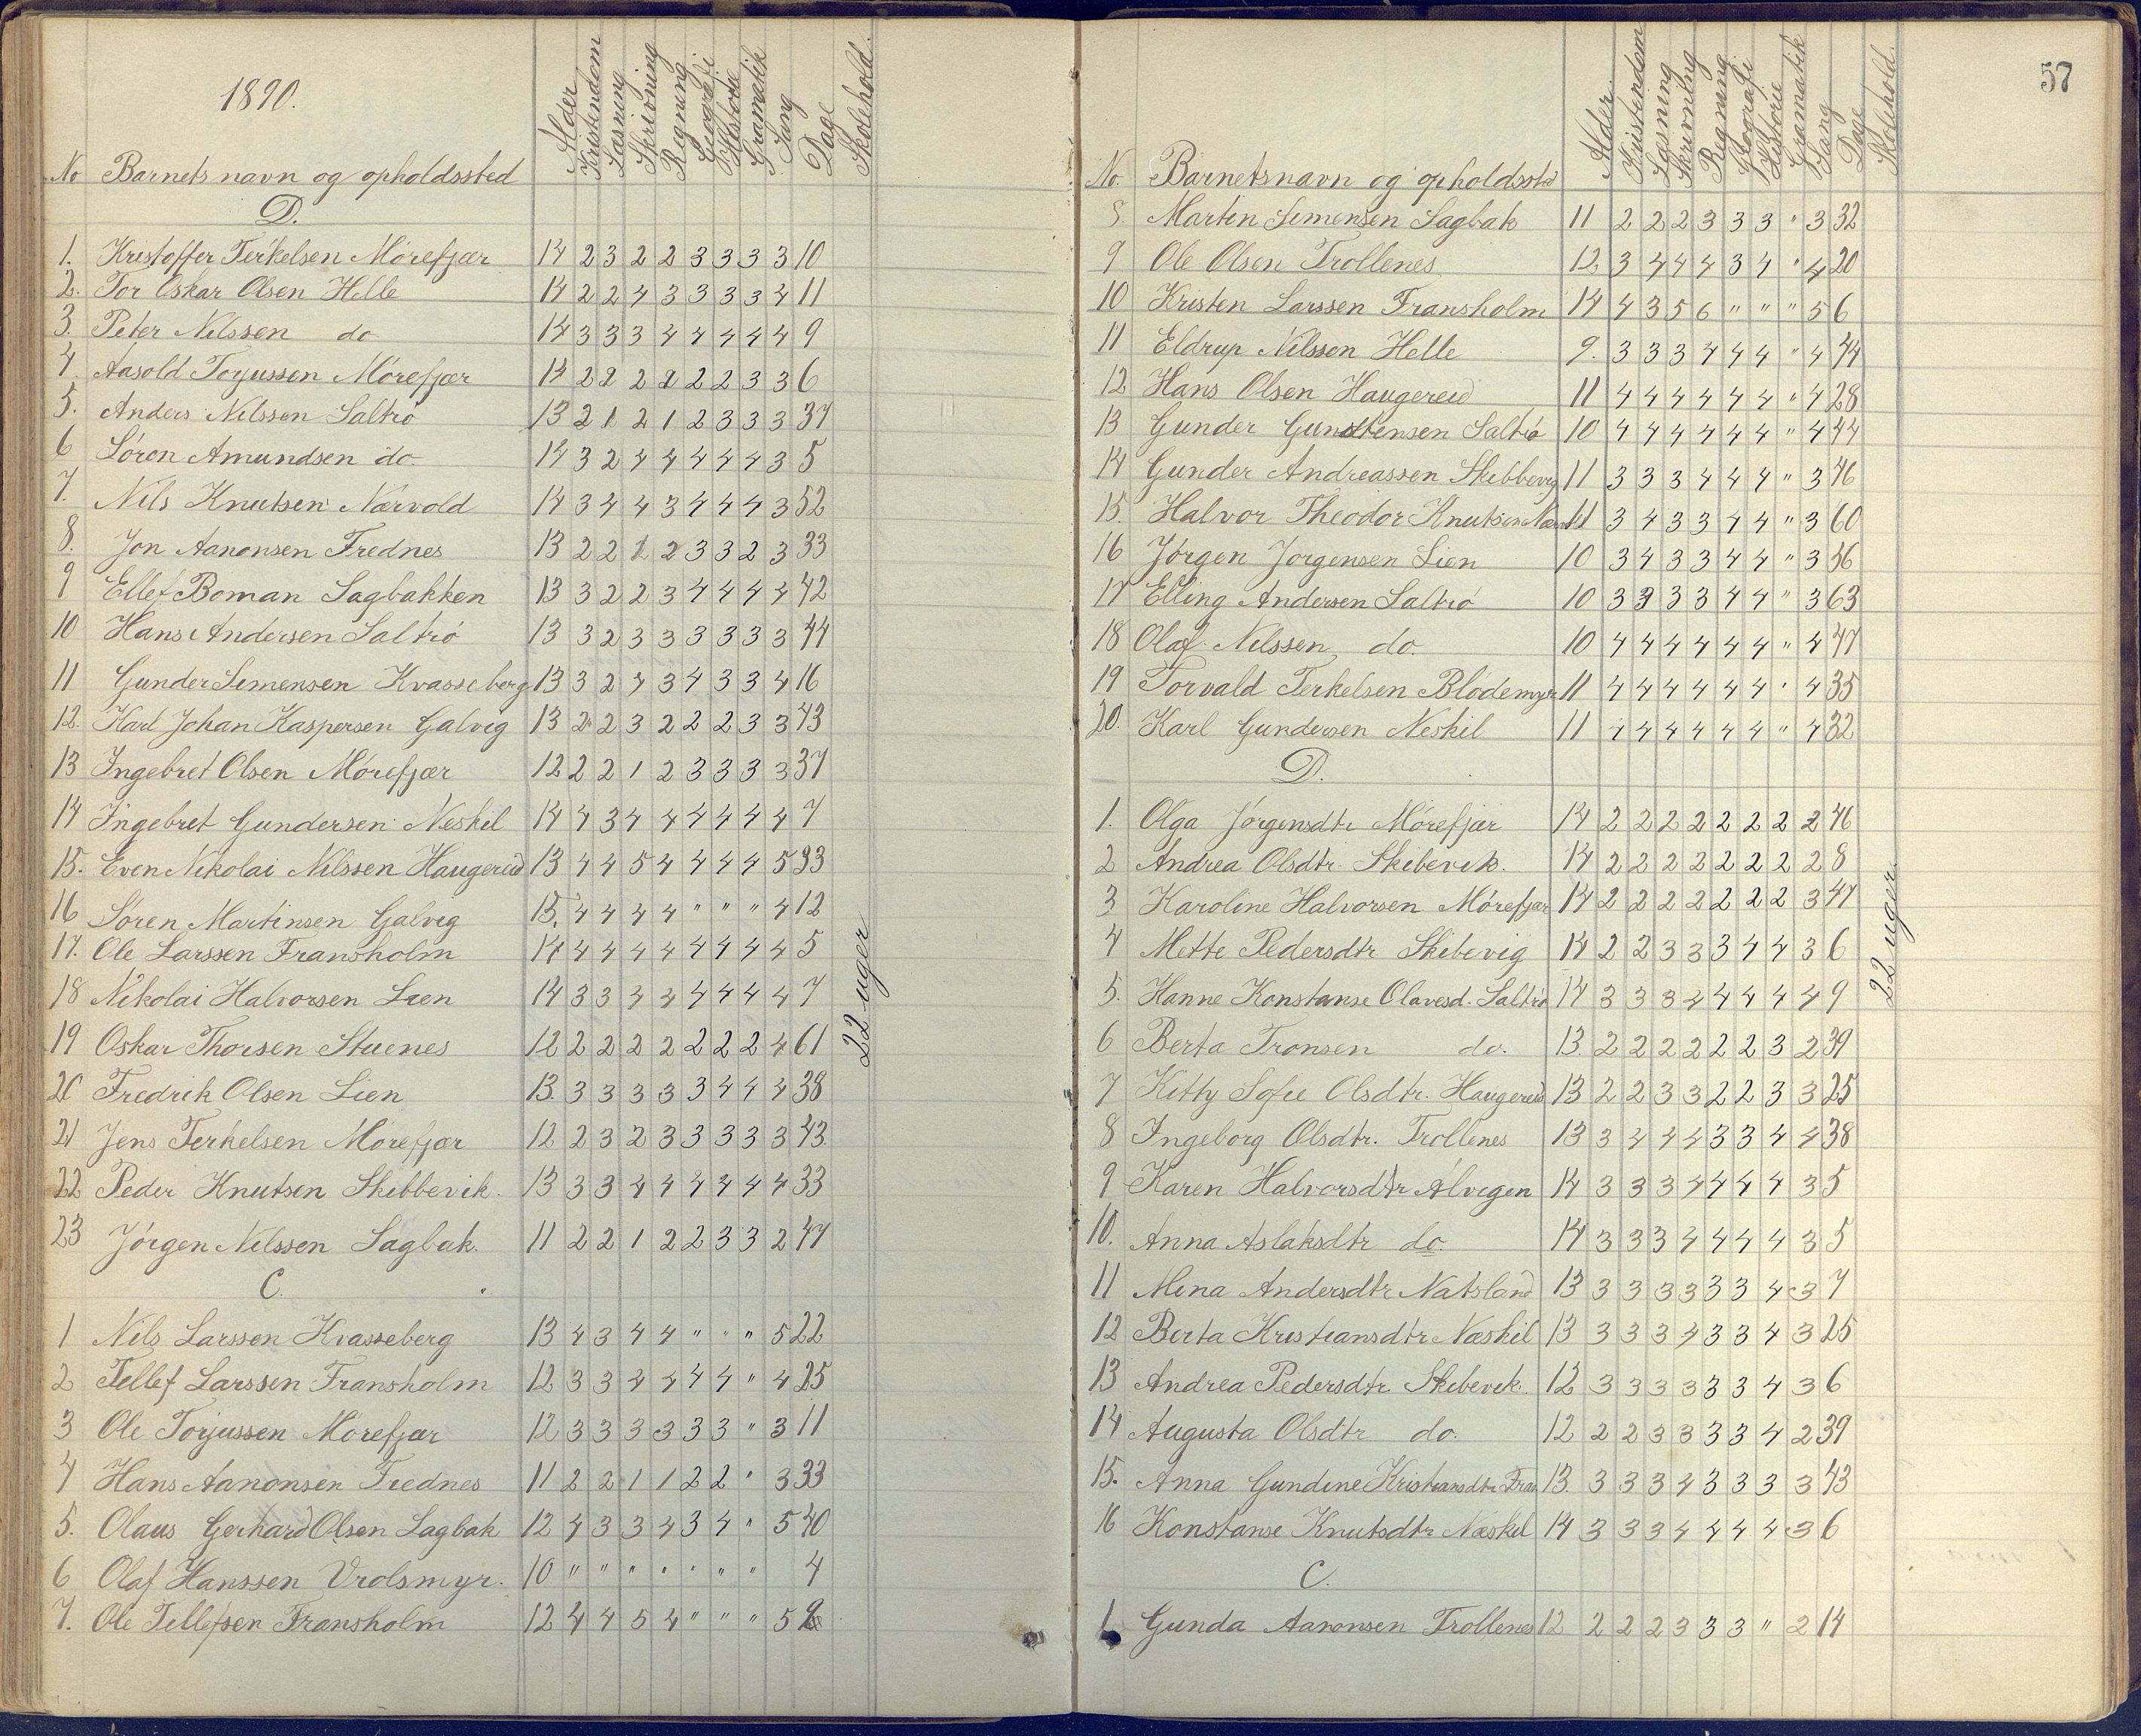 1890.
No Barnets navn og opholdssted Alder Kristendom Læsning Skrivning Regning Geografi Historie Gramatik Sang Dage Skolehold.
D.
1. Kristoffer Terkelsen Mörefjær 14 2 3 2 2 3 3 3 3 10
2. Tor Oskar Olsen Helle 14 2 2 4 3 3 3 3 4 11
3. Peter Nilssen do 14 3 3 3 4 4 4 4 4 9
4. Aasold Torjussen Mörefjær 14 2 2 2 2 2 2 3 3 6
5. Anders Nilssen Saltrö 13 2 1 2 1 2 3 3 3 37
6 Sören Amundsen do. 14 3 2 4 4 4 4 4 3 5
7. Nils Knutsen Nærvold 14 3 4 4 3 4 4 4 3 52
8. Jon Aanonsen Frednes 13 2 2 1 2 3 3 2 3 33
9 Ellef Boman Sagbakken 13 3 2 2 3 4 4 4 4 42
10 Hans Andersen Saltrö 13 3 2 3 3 3 3 3 3 44
11 Gunder Simensen Kvasseberg 13 3 2 4 3 4 3 3 4 16
12. Karl Johan Kaspersen Galvig 13 2 2 3 2 2 2 3 3 43
13 Ingebret Olsen Mörefjær 12 2 2 1 2 3 3 3 3 37
14 Ingebret Gundersen Neskil 14 4 3 4 4 4 4 4 4 7
15. Even Nikolai Nilssen Haugereid 13 4 4 5 4 4 4 4 5 33
16 Sören Martinsen Galvig 15. 4 4 4 4 " " " 4 12
17. Ole Larssen Fransholm 14 4 4 4 4 4 4 4 4 5
18 Nikolai Halvorsen Lien 14 3 3 4 4 4 4 4 4 7
19 Oskar Thorsen Stuenes 12 2 2 2 2 2 2 2 4 61
20 Fredrik Olsen Lien 13. 3 3 3 3 3 4 4 4 38
21 Jens Terkelsen Mörefjær 12 2 3 2 3 3 3 3 3 43.
22 Peder Knutsen Skibbevik. 13 3 3 4 4 4 4 4 4 33
23 Jörgen Nilssen Sagbak. 11 2 2 1 2 2 3 3 2 47
22 uger
C.
1 Nils Larssen Kvasseberg 13 4 3 4 4 " " " 5 22
2 Tellef Larssen Fransholm 12 3 3 4 4 4 4 " 4 25
3 Ole Torjussen Mörefjær 12 3 3 3 3 3 3 " 3 11
4 Hans Aanonsen Frednes 11 2 2 1 1 2 2 " 3 33
5. Olaus Gerhard Olsen Sagbak 12 4 3 3 4 3 4 " 5 40
6 Olaf Hanssen Vrolsmyr. 10 " " " " " " " 4
7. Ole Tellefsen Fransholm 12 4 4 5 4 " " " 5
57
No. Barnets navn og opholdsstd Alder Kristendom Læsning Skrivning Regning Geografi Historie Gramatik Sang Dage Skolehold.
8. Martin Simensen Sagbak 11 2 2 2 3 3 3 " 3 32
9 Ole Olsen Trollenes 12 3 4 4 4 3 4 " 4 20
10 Kristen Larssen Fransholm 14 4 3 5 6 " " " 5 6
11 Eldrup Nilssen Helle 9. 3 3 3 4 4 4 " 4 44
12 Hans Olsen Haugereid 11 4 4 4 4 4 4 " 4 28
13 Gunder Gundtensen Saltrö 10 4 4 4 4 4 4 " 4 44
14 Gunder Andreassen Skibbevig 11 3 3 3 4 4 4 " 3 46
15. Halvor Theodor Knutsen 11 3 4 3 3 4 4 " 3 60
16 Jörgen Jorgensen Lien 10 3 4 3 3 4 4 " 3 56
17 Elling Andersen Saltrö 10 3 3 3 3 4 4 " 3 63
18 Olaf Nilssen do. 10 4 4 4 4 4 4 " 4 47
19 Torvald Terkelsen Blödemyr 11 4 4 4 4 4 4 " 4 35
20. Karl Gundersen Neskil 11 4 4 4 4 4 4 " 4 32
D.
1. Olga Jörgensdtr Mörefjær 14 2 2 2 2 2 2 2 2 46
2 Andrea Olsdtr. Skibevik. 14 2 2 2 2 2 2 2 2 8
3 Karoline Halvorsen Mörefjær 14 2 2 2 2 2 2 2 3 47
4 Mette Pedersdtr Skibevig 14 2 2 3 3 3 4 4 3 6
5. Hanne Konstanse Olavesd. Saltrö 14 3 3 3 4 4 4 4 4 9
6 Berta Tronsen do. 13. 2 2 2 2 2 2 3 2 39
7 Kitty Sofie Olsdtr. Haugereid 13 2 2 3 3 2 2 3 3 25
8 Ingeborg Olsdtr. Trollenes 13 3 4 4 4 3 3 4 4 38
9 Karen Halvorsdtr Alvegen 14 3 3 3 4 4 4 4 3 5
10. Anna Aslaksdtr do. 14 3 3 3 4 4 4 4 3 5
11 Mina Andersdtr Natsland 13 3 3 3 3 3 3 4 3 7
12 Berta Kristiansdtr Næskil 13 3 3 3 4 3 3 4 3 25
13 Andrea Pedersdtr Skibevik. 12 3 3 3 3 3 3 4 3 6
14 Augusta Olsdtr do. 12 2 2 3 3 3 3 4 2 39
15. Anna Gundine Kristiansdtr Fran 13. 3 3 3 4 3 3 3 3 43
16 Konstanse Knutsdtr Næskil 14 3 3 3 4 4 4 4 3 6
22 uger.
C.
1. Gunda Aanonsen Trollenes 12 2 2 2 3 3 3 " 2 14